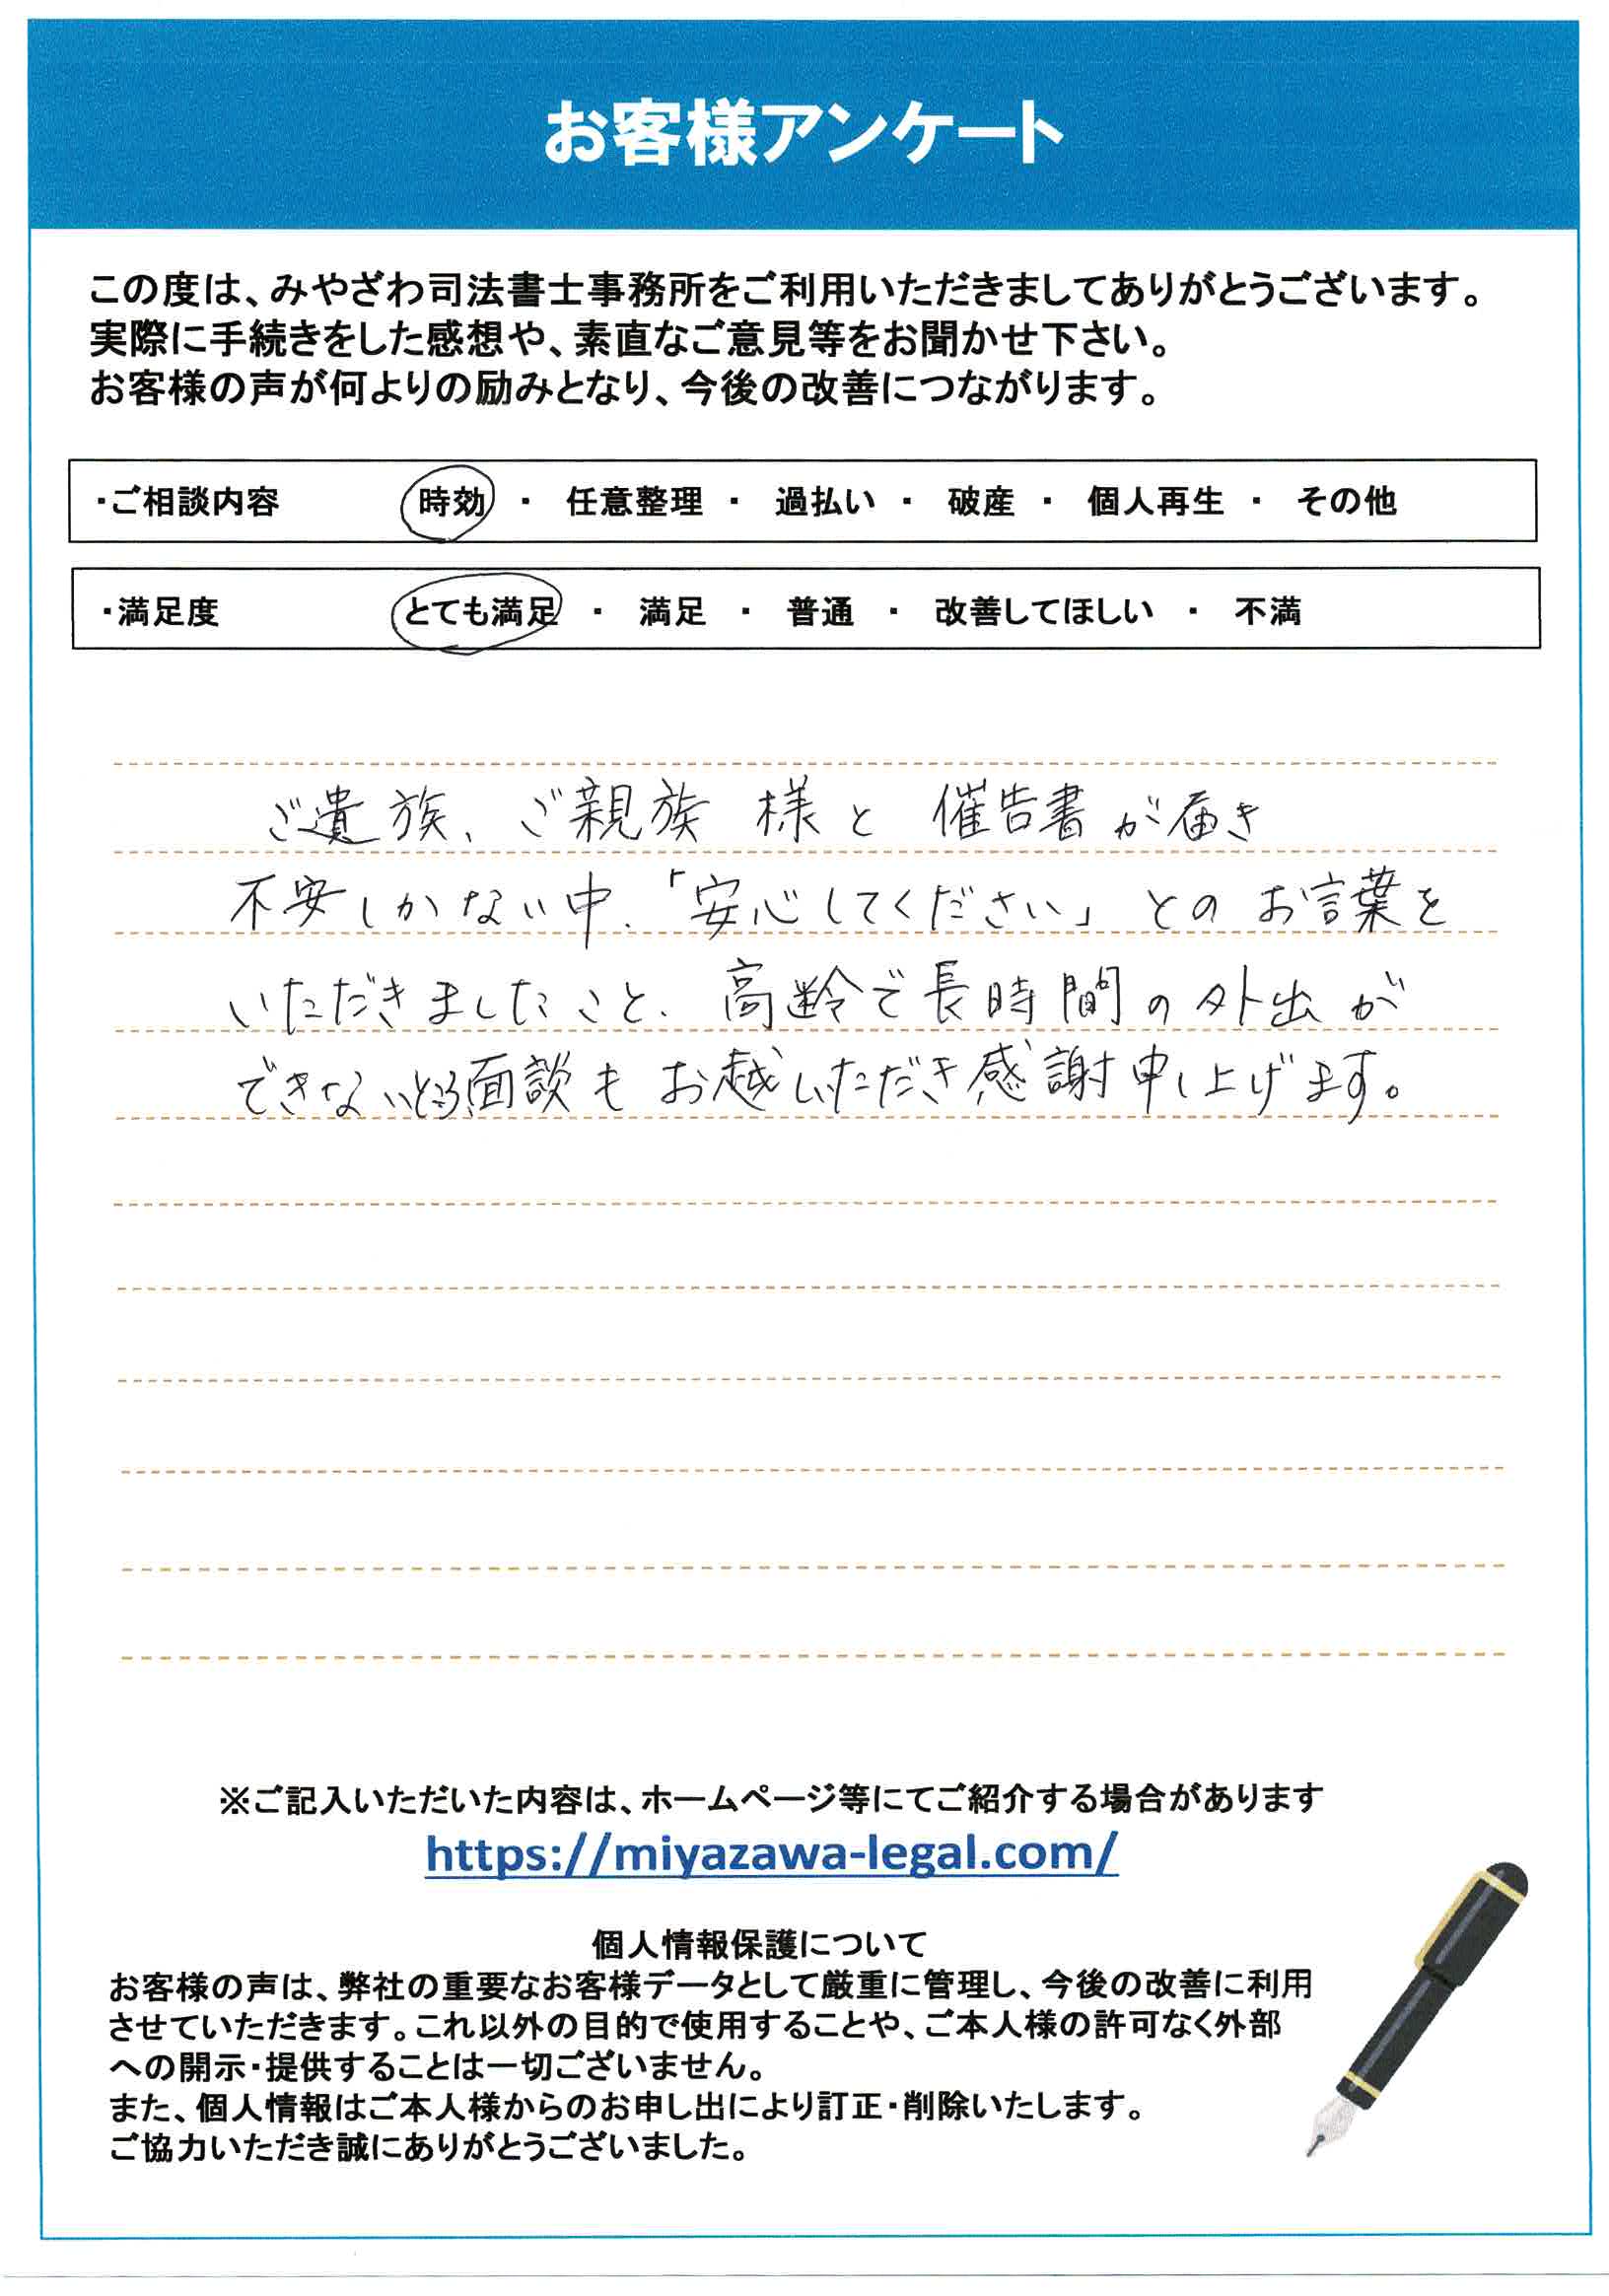 お客様アンケート
この度は、みやざわ司法書士事務所をご利用いただきましてありがとうございます。
実際に手続きをした感想や、素直なご意見等をお聞かせ下さい。
お客様の声が何よりの励みとなり、今後の改善につながります。
・ご相談内容 時効 ・ 任意整理 ・ 過払い ・ 破産 ・ 個人再生 ・ その他
・満足度 とても満足 ・ 満足 ・ 普通 ・ 改善してほしい ・ 不満
ご遺族、ご親族 様と 催告書が届き
不安しかない中、「安心してください」とのお言葉を
いただきましたこと、高齢で長時間の外出が
できないところ、面談もお越しいただき感謝申し上げます。
※ご記入いただいた内容は、ホームページ等にてご紹介する場合があります
https://miyazawa-legal.com/
個人情報保護について
お客様の声は、弊社の重要なお客様データとして厳重に管理し、今後の改善に利用
させていただきます。これ以外の目的で使用することや、ご本人様の許可なく外部
への開示・提供することは一切ございません。
また、個人情報はご本人様からのお申し出により訂正・削除いたします。
ご協力いただき誠にありがとうございました。